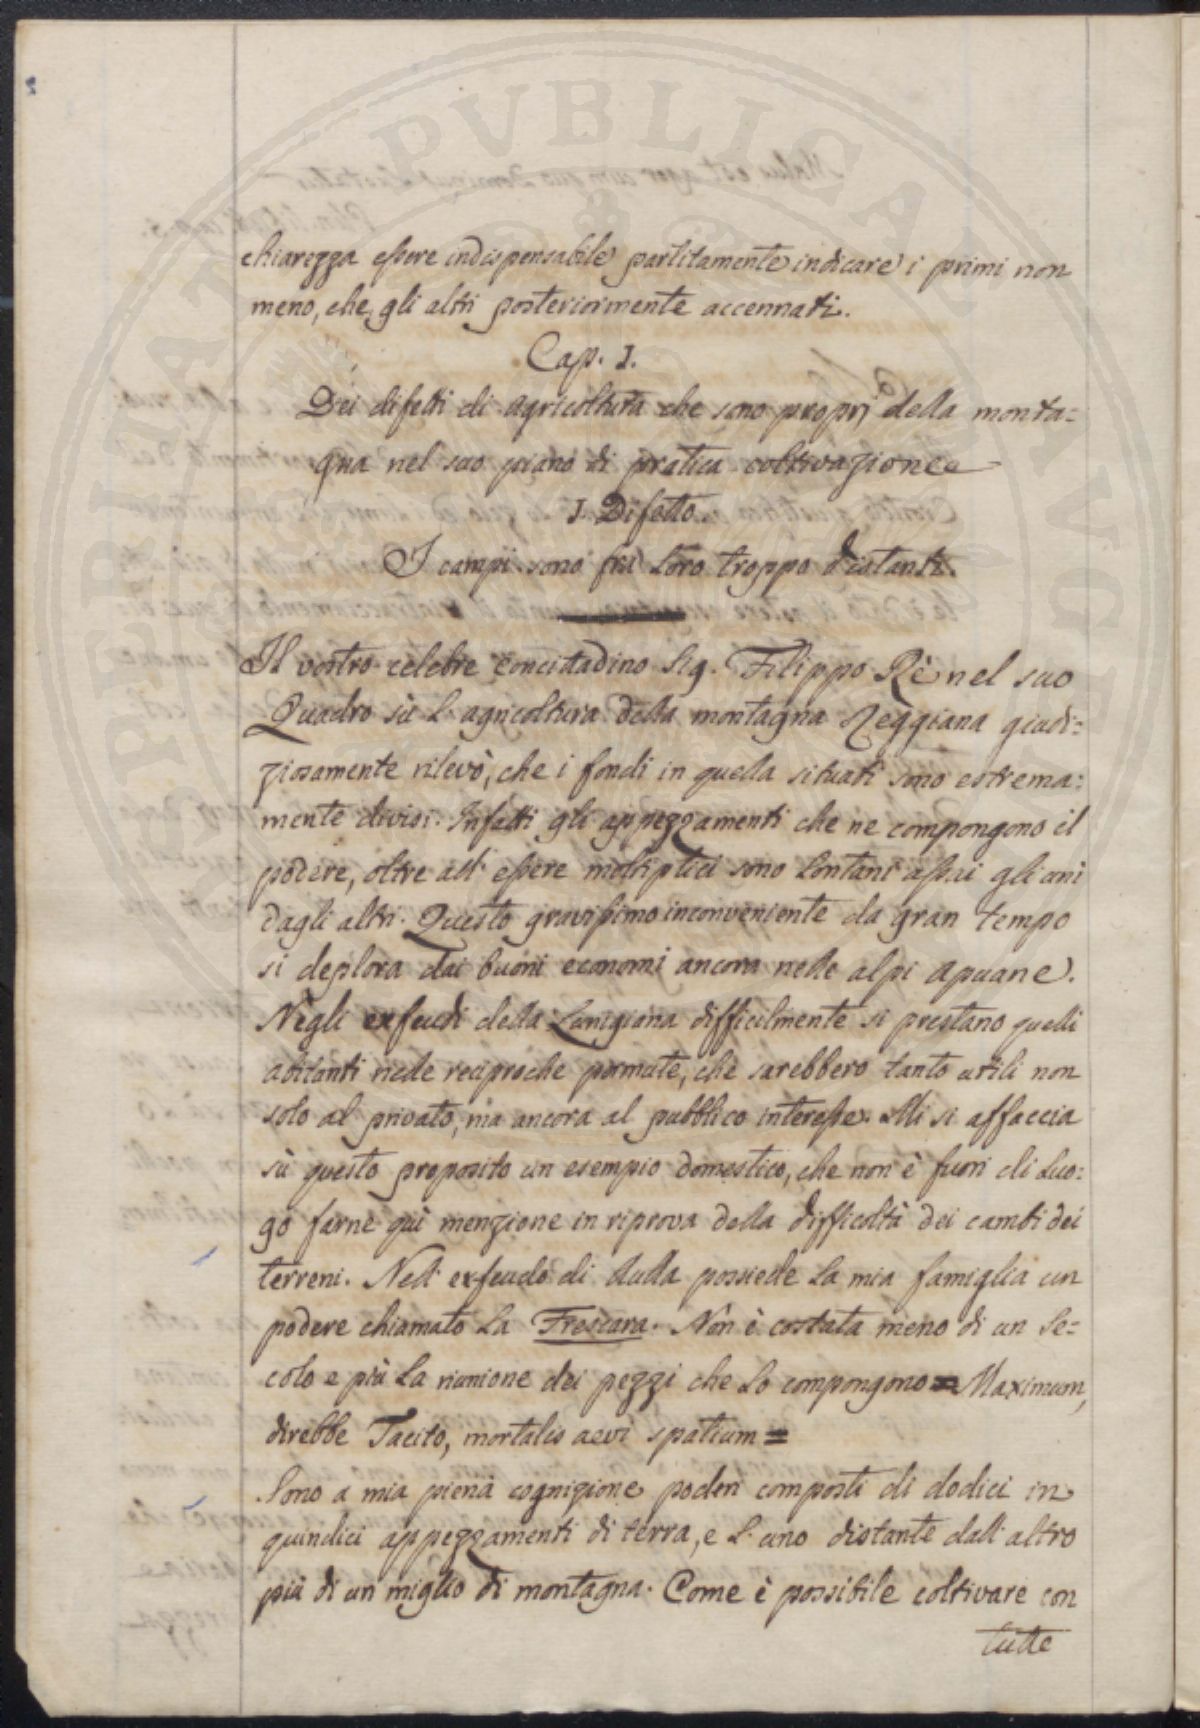 PERINAT PVBLICAE AVCT
chiarezza essere indispensabile partitamente indicare i primi non
meno, che gli altri posteriormente accennati.
Cap. I.
Dei difetti di agricoltura che sono proprj della monta=
gna nel suo piano di pratica coltivazione
I. Difetto.
I campi sono fra loro troppo distanti.
Il vostro celebre concittadino Sig. Filippo Rè nel suo
Quadro sù l'agricoltura della montagna Reggiana giudi=
ziosamente rilevò, che i fondi in quella situati sono estrema=
mente divisi. Infatti gli appezzamenti che ne compongono il
podere, oltre all'essere moltiplici sono lontani assai gli uni
dagli altri. Questo gravissimo inconveniente da gran tempo
si deplora dai buoni economi ancora nelle alpi apuane.
Negli exfeudi della Lunigiana difficilmente si prestano quelli
abitanti nelle reciproche permute, che sarebbero tanto utili non
solo al privato, ma ancora al pubblico interesse. Mi si affaccia
sù questo proposito un esempio domestico, che non è fuori di luo=
go farne quì menzione in riprova della difficoltà dei cambi dei
terreni. Nell'exfeudo di Aulla possiede la mia famiglia un
podere chiamato la Frescara. Non è costata meno di un se=
colo e più la riunione dei pezzi che lo compongono = Maximum,
direbbe Tacito, mortalis aevi spatium =
Sono a mia piena cognizione poderi composti di dodici in
quindici appezzamenti di terra, e l'uno distante dall'altro
più di un miglio di montagna. Come è possibile coltivare con
tutte